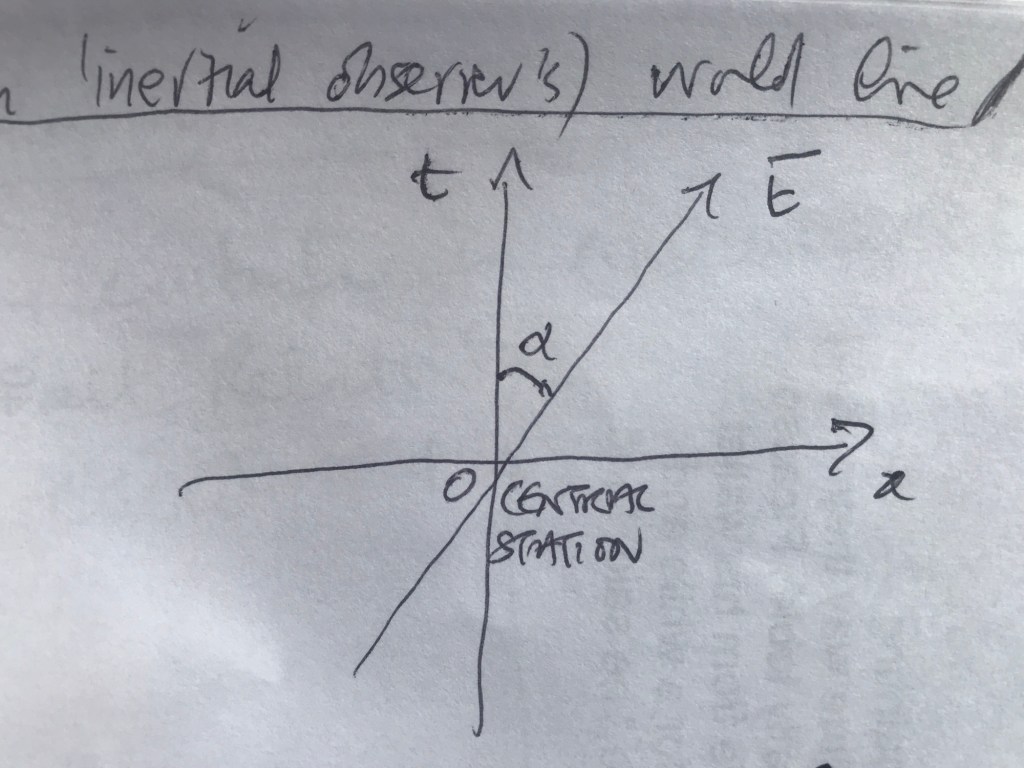 'inertial observer's) world line
t E̅
α
O CENTRAL
STATION
x